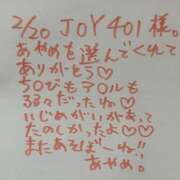 2/20 JOY401様。
あやめを選んでくれて
ありがとう♡
ち○びもア○ルも
弱々だったね♡
いじめがいがあって
たのしかったよ♡♡
またあそぼーね!!
あやめ。